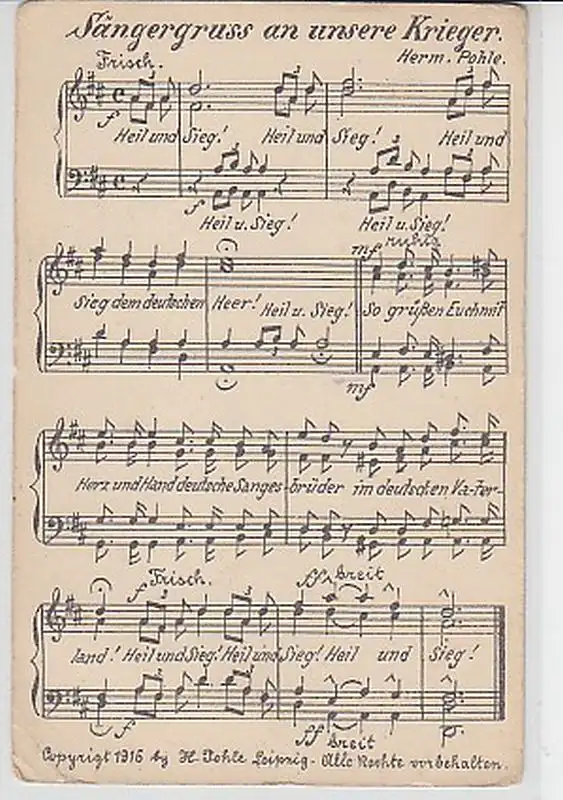 Sängergruss an unsere Krieger.
Herm. Pohle.
Frisch.
f
3 3 3
Heil und Sieg! Heil und Sieg! Heil und
3 3
f
Heil u. Sieg! Heil u. Sieg!
mf ruhig
Sieg dem deutschen Heer! Heil u. Sieg! So grüßen Euch mit
3
mf
Herz und Hand deutsche Sanges-brüder im deutschen Va-ter-
f Frisch. ff breit
land! Heil und Sieg! Heil und Sieg! Heil und Sieg!
f ff breit
Copyrigt 1916 by H. Pohle Leipzig - Alle Rechte vorbehalten.